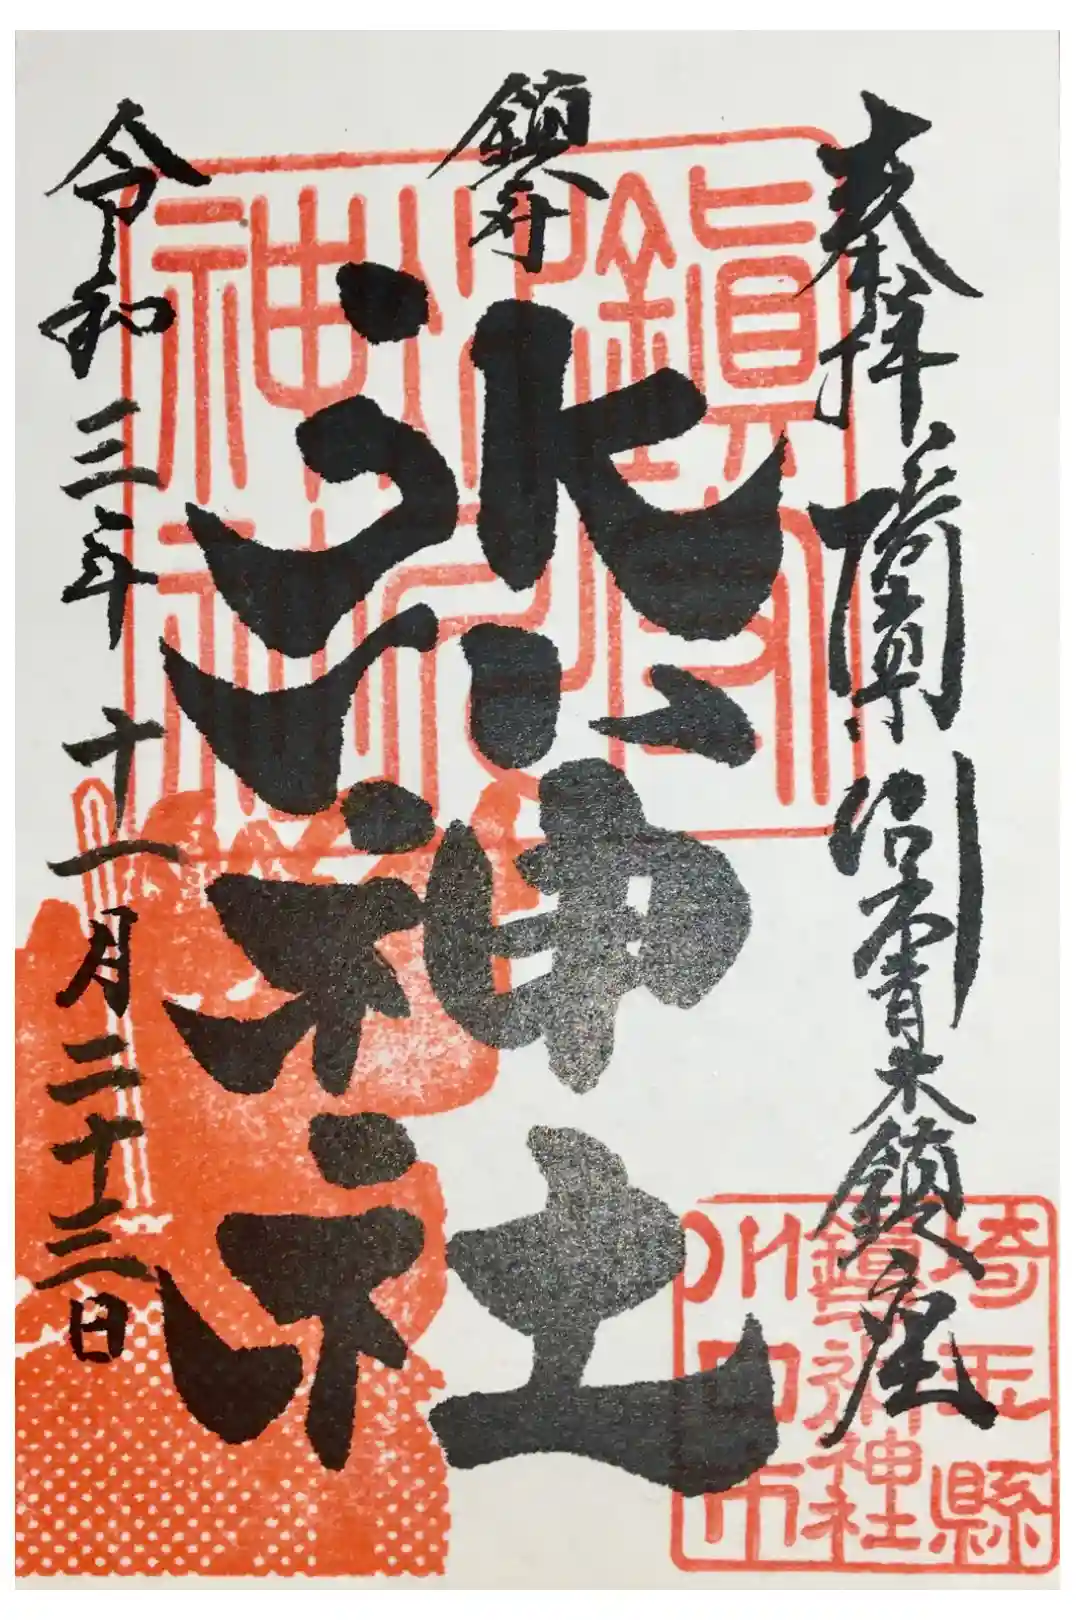 奉拝
青木鎮座
鎮守
氷川神社
令和三年十一月二十三日
鎮守氷川神社
埼玉縣
鎮守氷川神社
川口市